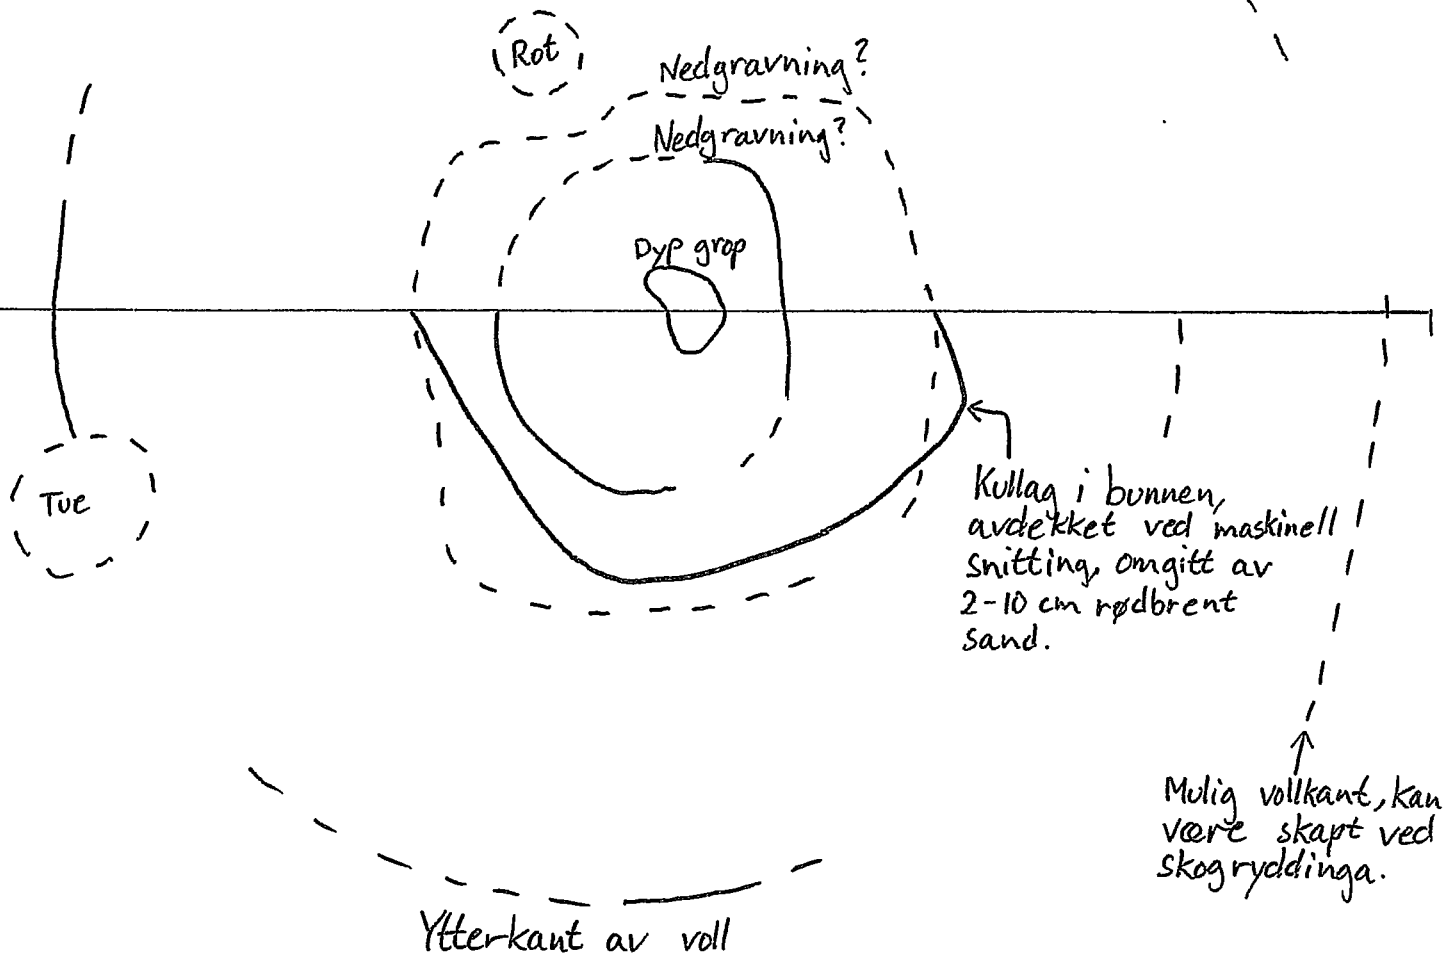 Rot
Nedgravning?
Nedgravning?
Dyp grop
Tue
Kullag i bunnen,
avdekket ved maskinell
snitting, omgitt av
2-10 cm rødbrent
sand.
Mulig vollkant, kan
være skapt ved
skogryddinga.
Ytterkant av voll